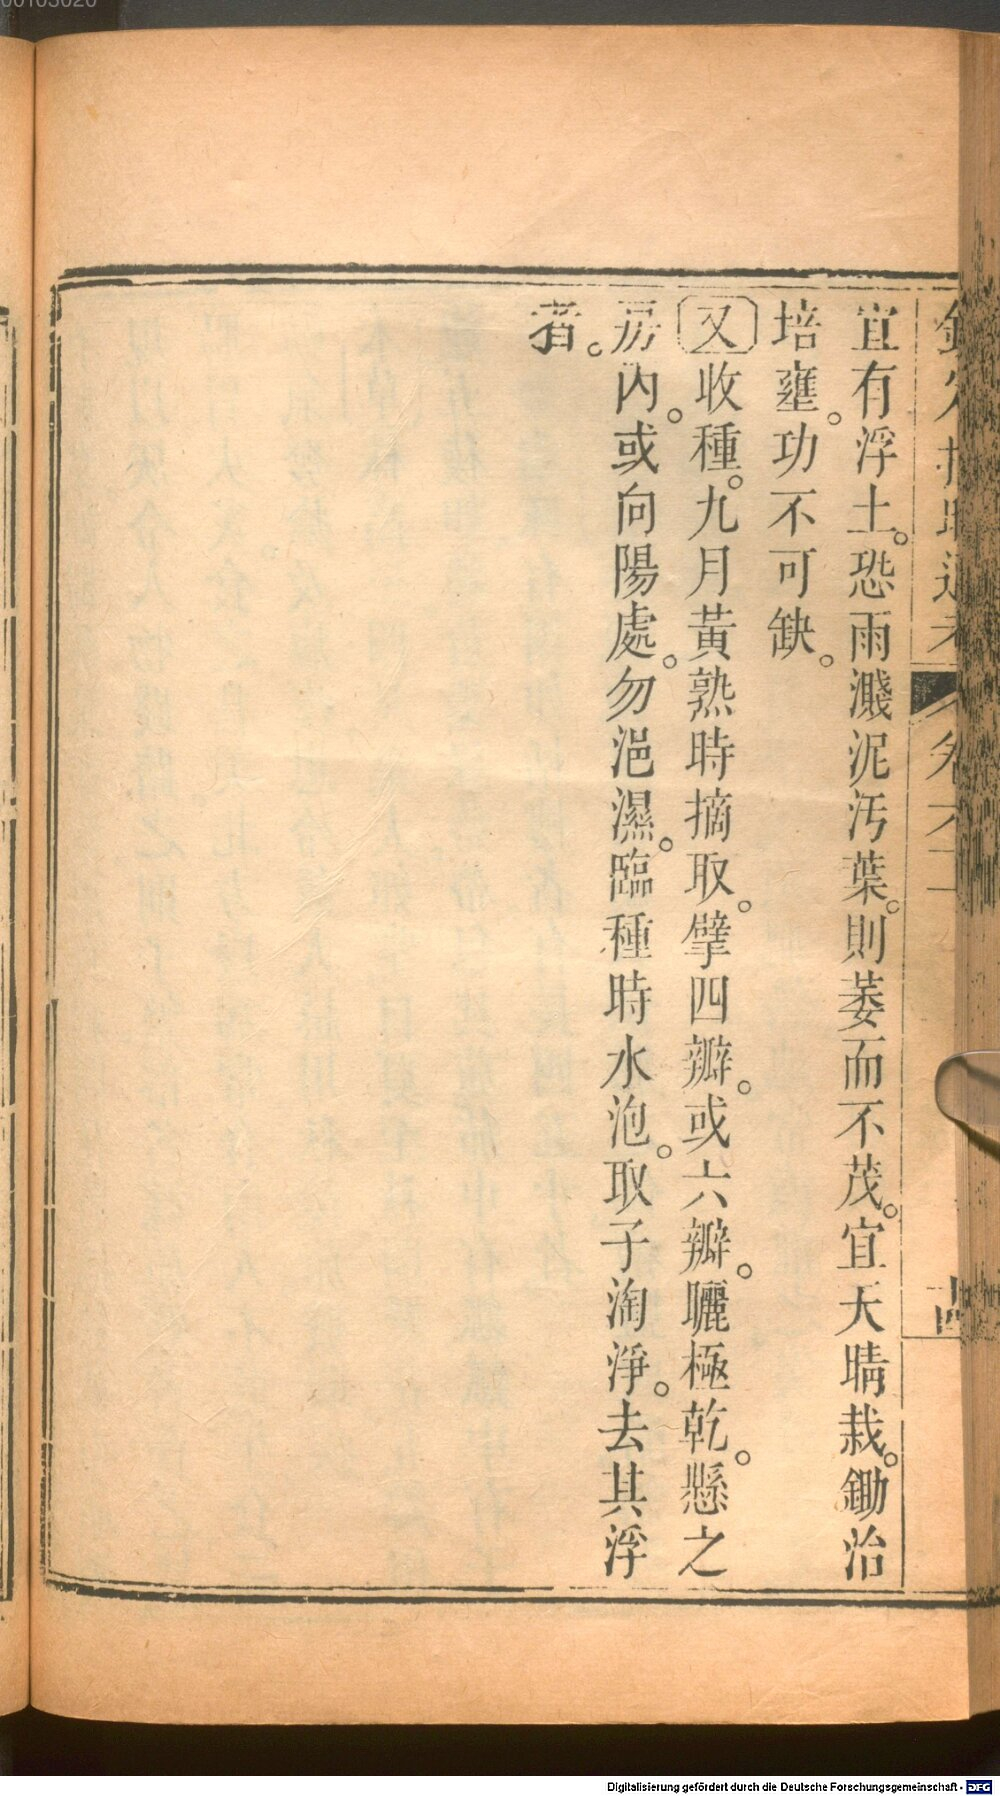 00103020
欽定授時通考
卷六十
宜有浮土。恐雨濺泥汚葉。則萎而不茂。宜天晴栽。鋤治
培壅。功不可缺。
又收種。九月黃熟時摘取。擘四瓣。或六瓣。曬極乾。懸之
房內。或向陽處。勿浥濕。臨種時水泡。取子淘淨。去其浮
者。
Digitalisierung gefördert durch die Deutsche Forschungsgemeinschaft - DFG